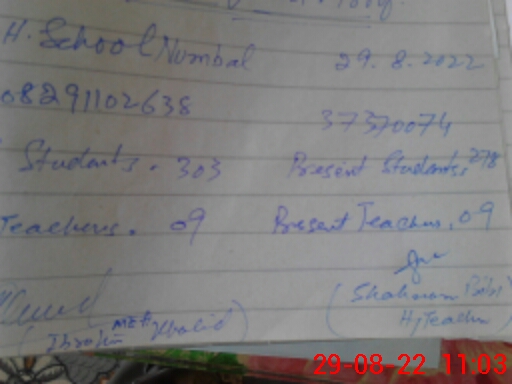 H. School Numbal 29.8.2022
08291102638
37370074
Students. 303 Present Students. 278
Teachers. 09 Present Teachers. 09
MEA Khalid)
(Shahnam Bibi
H/Teacher
29-08-22 11:03